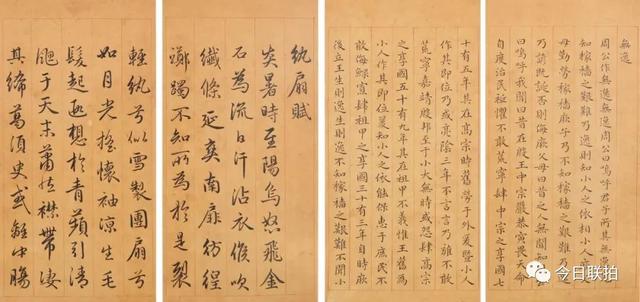 無逸
周公作無逸無逸周公曰嗚呼君子所其無逸先
知稼穡之艱難乃逸則知小人之依相小人厥父
母勤勞稼穡厥子乃不知稼穡之艱難乃逸
乃諺既誕否則侮厥父母曰昔之人無聞知周公
曰嗚呼我聞曰昔在殷王中宗嚴恭寅畏天命
自度治民祗懼不敢荒寧肆中宗之享國七
十有五年其在高宗時舊勞于外爰暨小人
作其即位乃或亮陰三年不言言乃雍不敢
荒寧嘉靖殷邦至于小大無時或怨肆高宗
之享國五十有九年其在祖甲不義惟王舊為
小人作其即位爰知小人之依能保惠于庶民不
敢侮鰥寡肆祖甲之享國三十有三年自時厥
後立王生則逸生則逸不知稼穡之艱難不聞小
紈扇賦
炎暑時至陽烏怒飛金
石為流日汗沾衣倐吹
纖絛延爽南扉彷徨
躑躅不知所為於是裂
輕紈兮似雪製團扇兮
如月光搖懷袖涼生毛
髮起遐想於青蘋引清
飔于天末蕭襟帶凄
其絺葛須臾或離中腸
今日联拍